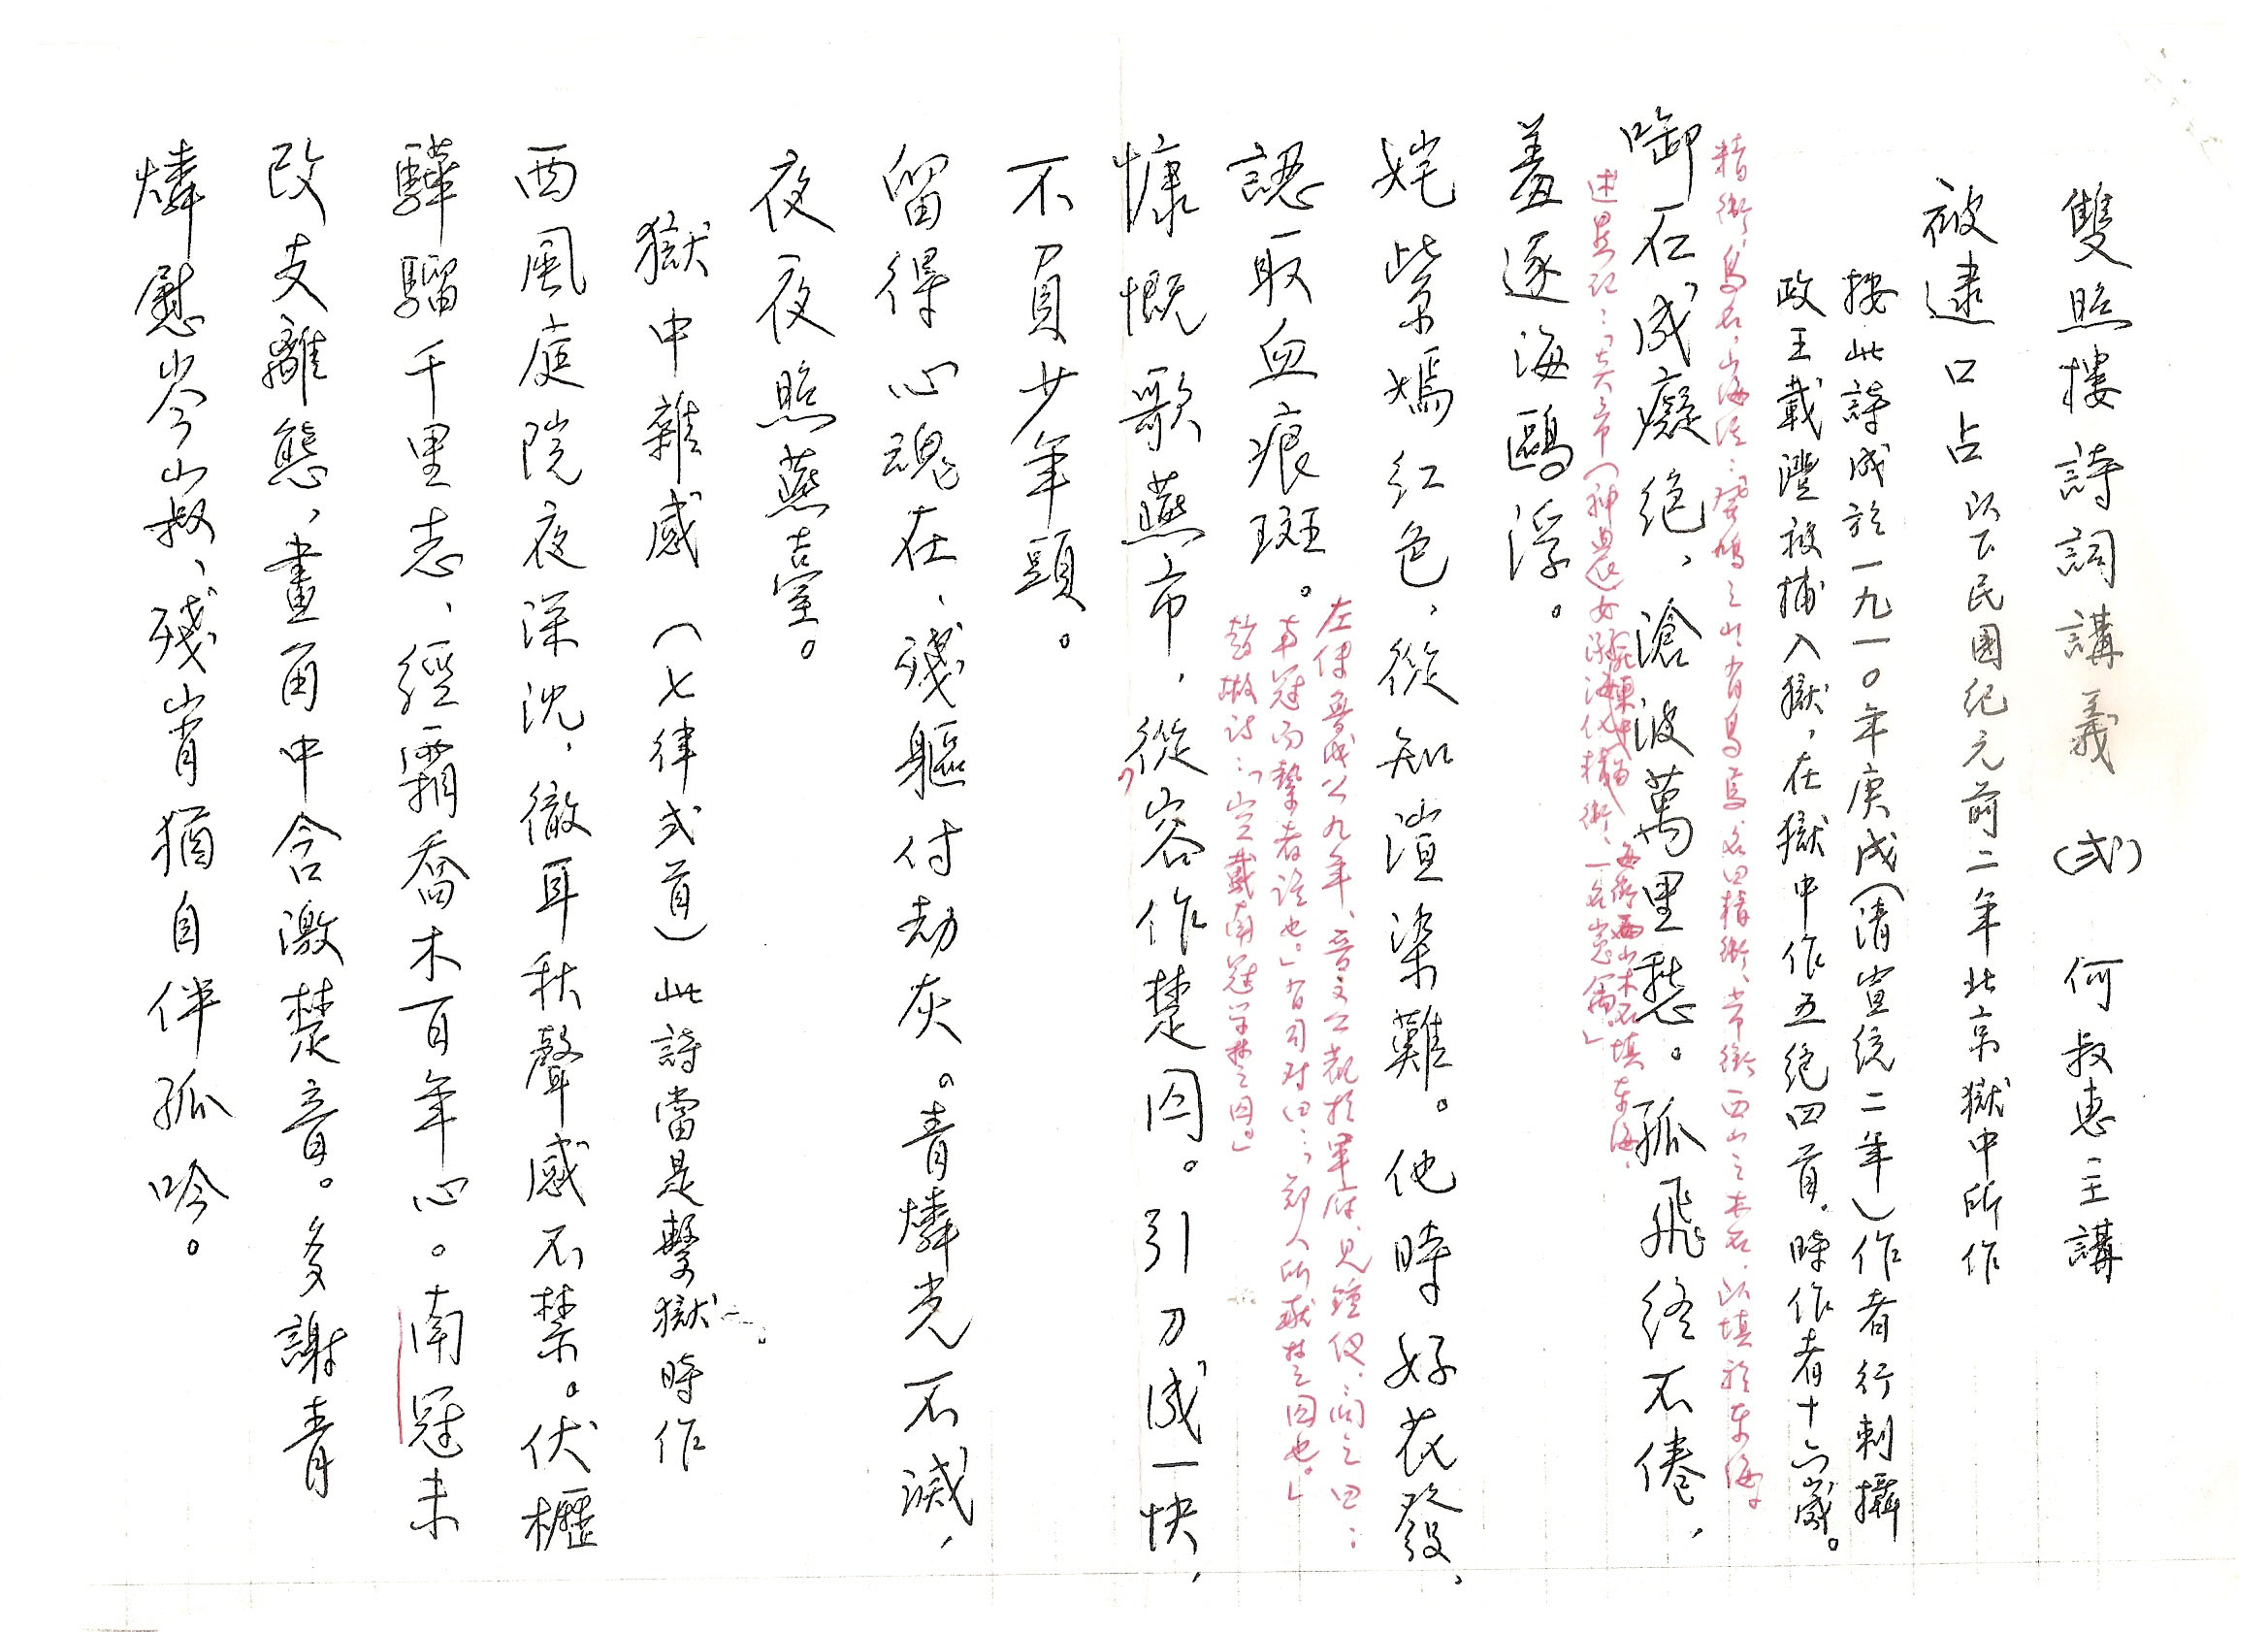 雙照樓詩詞講義 (弍) 何叔惠主講
被逮口占 以下民國紀元前二年北京獄中所作
按此詩成於一九一〇年庚戌(清宣統二年)作者行刺攝
政王載灃被捕入獄,在獄中作五絕四首,時作者十六歲。
精衛,鳥名,山海經:發鳩之山有鳥焉,名曰精衛、常銜西山之木石,以填於東海。
啣石成癡絕、滄波萬里愁。孤飛終不倦,
述異記:「炎帝(神農)女溺東海中化精衛、一名冤禽。」
每銜西山木石填東海,
羞逐海鷗浮。
姹紫嫣紅色,從知渲染難。他時好花發、
左傳魯成公九年、晉文公觀於軍府、見鍾儀、問之曰:
認取血痕斑。
南冠而縶者誰也。」有司对曰:「鄭人所献楚囚也。」
豈戴南冠学楚囚。」
慷慨歌燕市,從容作楚囚。引刀成一快,
不負少年頭。
留得心魂在、殘軀付劫灰。青燐光不滅,
夜夜照燕臺。
獄中雜感 (七律弍首) 此詩當是繫獄時作
西風庭院夜深沈,徹耳秋聲感不禁。伏櫪
驊騮千里志、經霜喬木百年心。南冠未
改支離態、畫角中含激楚音。多謝青
燐慰岑寂、殘宵猶自伴孤吟。